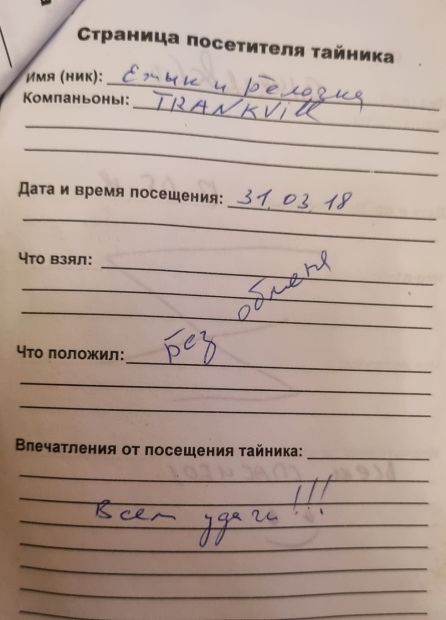 Страница посетителя тайника
Имя (ник): Ёжык и
Компаньоны: TRANKVill
Дата и время посещения: 31.03.18
Что взял:
без обмена
Что положил:
Впечатления от посещения тайника:
Всем удачи!!!